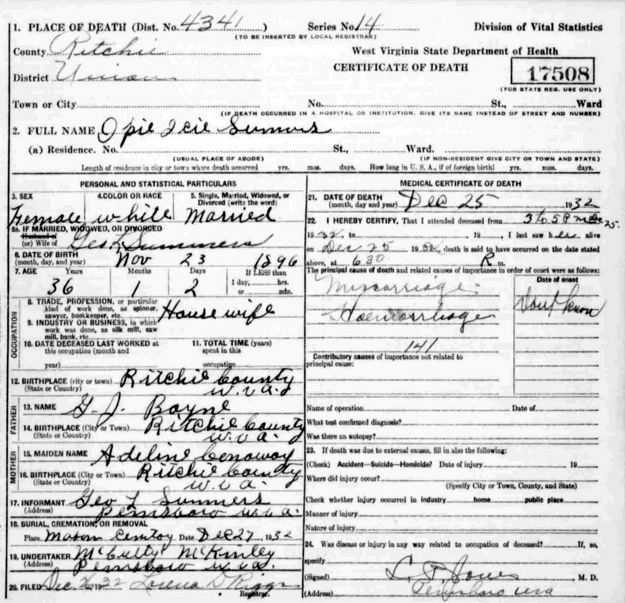 1. PLACE OF DEATH (Dist. No. 4341) Series No. 14 Division of Vital Statistics
(TO BE INSERTED BY LOCAL REGISTRAR)
County Ritchie West Virginia State Department of Health
District Union CERTIFICATE OF DEATH 17508
(FOR STATE REG. USE ONLY)
Town or City No. St., Ward
(IF DEATH OCCURRED IN A HOSPITAL OR INSTITUTION, GIVE ITS NAME INSTEAD OF STREET AND NUMBER)
2. FULL NAME Opie Icie Summers
(a) Residence. No. St., Ward.
(USUAL PLACE OF ABODE) (IF NON-RESIDENT GIVE CITY OR TOWN AND STATE)
Length of residence in city or town where death occurred yrs. mos. days. How long in U. S., if of foreign birth? yrs. mos. days.
PERSONAL AND STATISTICAL PARTICULARS
3. SEX 4. COLOR OR RACE 5. Single, Married, Widowed, or Divorced (write the word)
Female white Married
5a. IF MARRIED, WIDOWED, OR DIVORCED
Husband of
(or) Wife of Geo L Summers
6. DATE OF BIRTH Nov 23 1896
(month, day, and year)
7. AGE Years Months Days If LESS than
36 1 2 1 day, hrs.
or min.
OCCUPATION
8. TRADE, PROFESSION, or particular
kind of work done, as spinner, House wife
sawyer, bookkeeper, etc.
9. INDUSTRY OR BUSINESS, in which
work was done, as silk mill, saw
mill, bank, etc.
10. DATE DECEASED LAST WORKED at 11. TOTAL TIME (years)
this occupation (month and spent in this
year) occupation
12. BIRTHPLACE (city or town) Ritchie County
(State or Country) W.Va.
FATHER
13. NAME G. J. Bayne
14. BIRTHPLACE (City or Town) Ritchie County
(State or Country) W.Va.
MOTHER
15. MAIDEN NAME Adeline Conaway
16. BIRTHPLACE (City or Town) Ritchie County
(State or Country) W.Va.
17. INFORMANT Geo L Summers
(Address) Pennsboro W.Va.
18. BURIAL, CREMATION, OR REMOVAL
Place Mason Date Dec 27 1932
19. UNDERTAKER McCulty McKinley
(Address) Pennsboro W.Va.
20. FILED Dec 32 Lorena D Riggs
Registrar.
MEDICAL CERTIFICATE OF DEATH
21. DATE OF DEATH Dec 25 1932
(month, day and year)
22. I HEREBY CERTIFY, That I attended deceased from
1932 to 19 I last saw her alive
on Dec 25 1932, death is said to have occurred on the date stated
above, at 630 m.
The principal cause of death and related causes of importance in order of onset were as follows:
Date of onset
Miscarriage Don't know
Haemorrhage
141
Contributory causes of importance not related to
principal cause:
Name of operation Date of
What test confirmed diagnosis?
Was there an autopsy?
23. If death was due to external causes, fill in also the following:
(Check) Accident—Suicide—Homicide? Date of injury 19
Where did injury occur?
(Specify City or Town, County, and State)
Check whether injury occurred in industry home public place
Manner of injury
Nature of injury
24. Was disease or injury in any way related to occupation of deceased? If, so,
specify
(Signed) Jones M. D.
(Address) Pennsboro W.Va